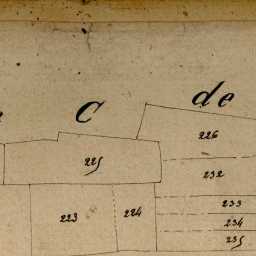 C de
226
225
232
223 224
233
234
235